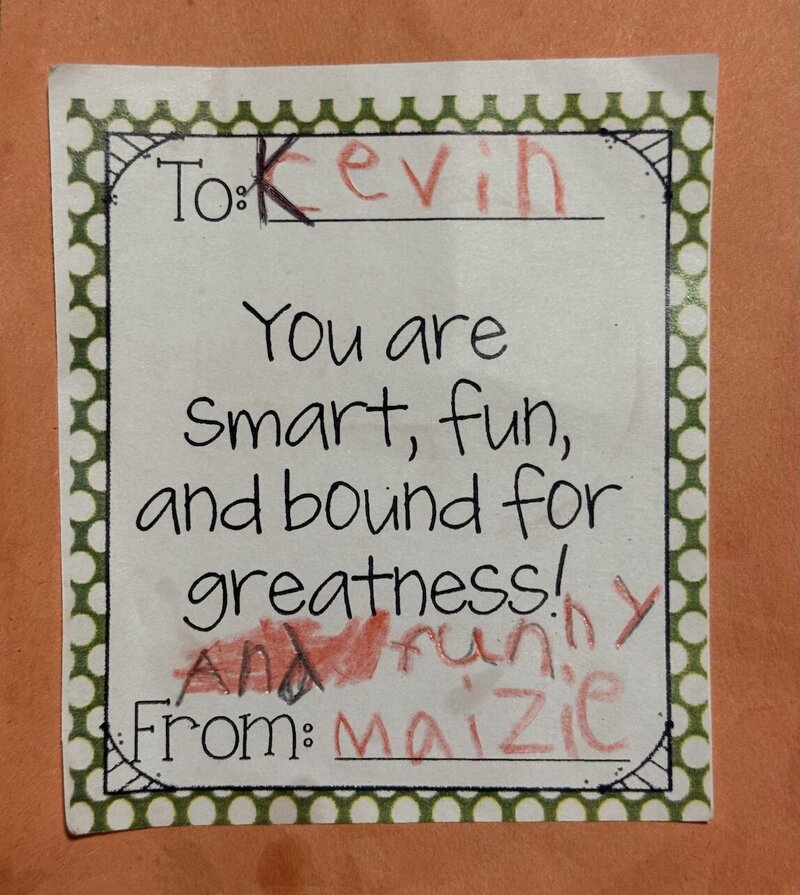 To: Kevin
You are
smart, fun,
and bound for
greatness!
And funny
From: maizie